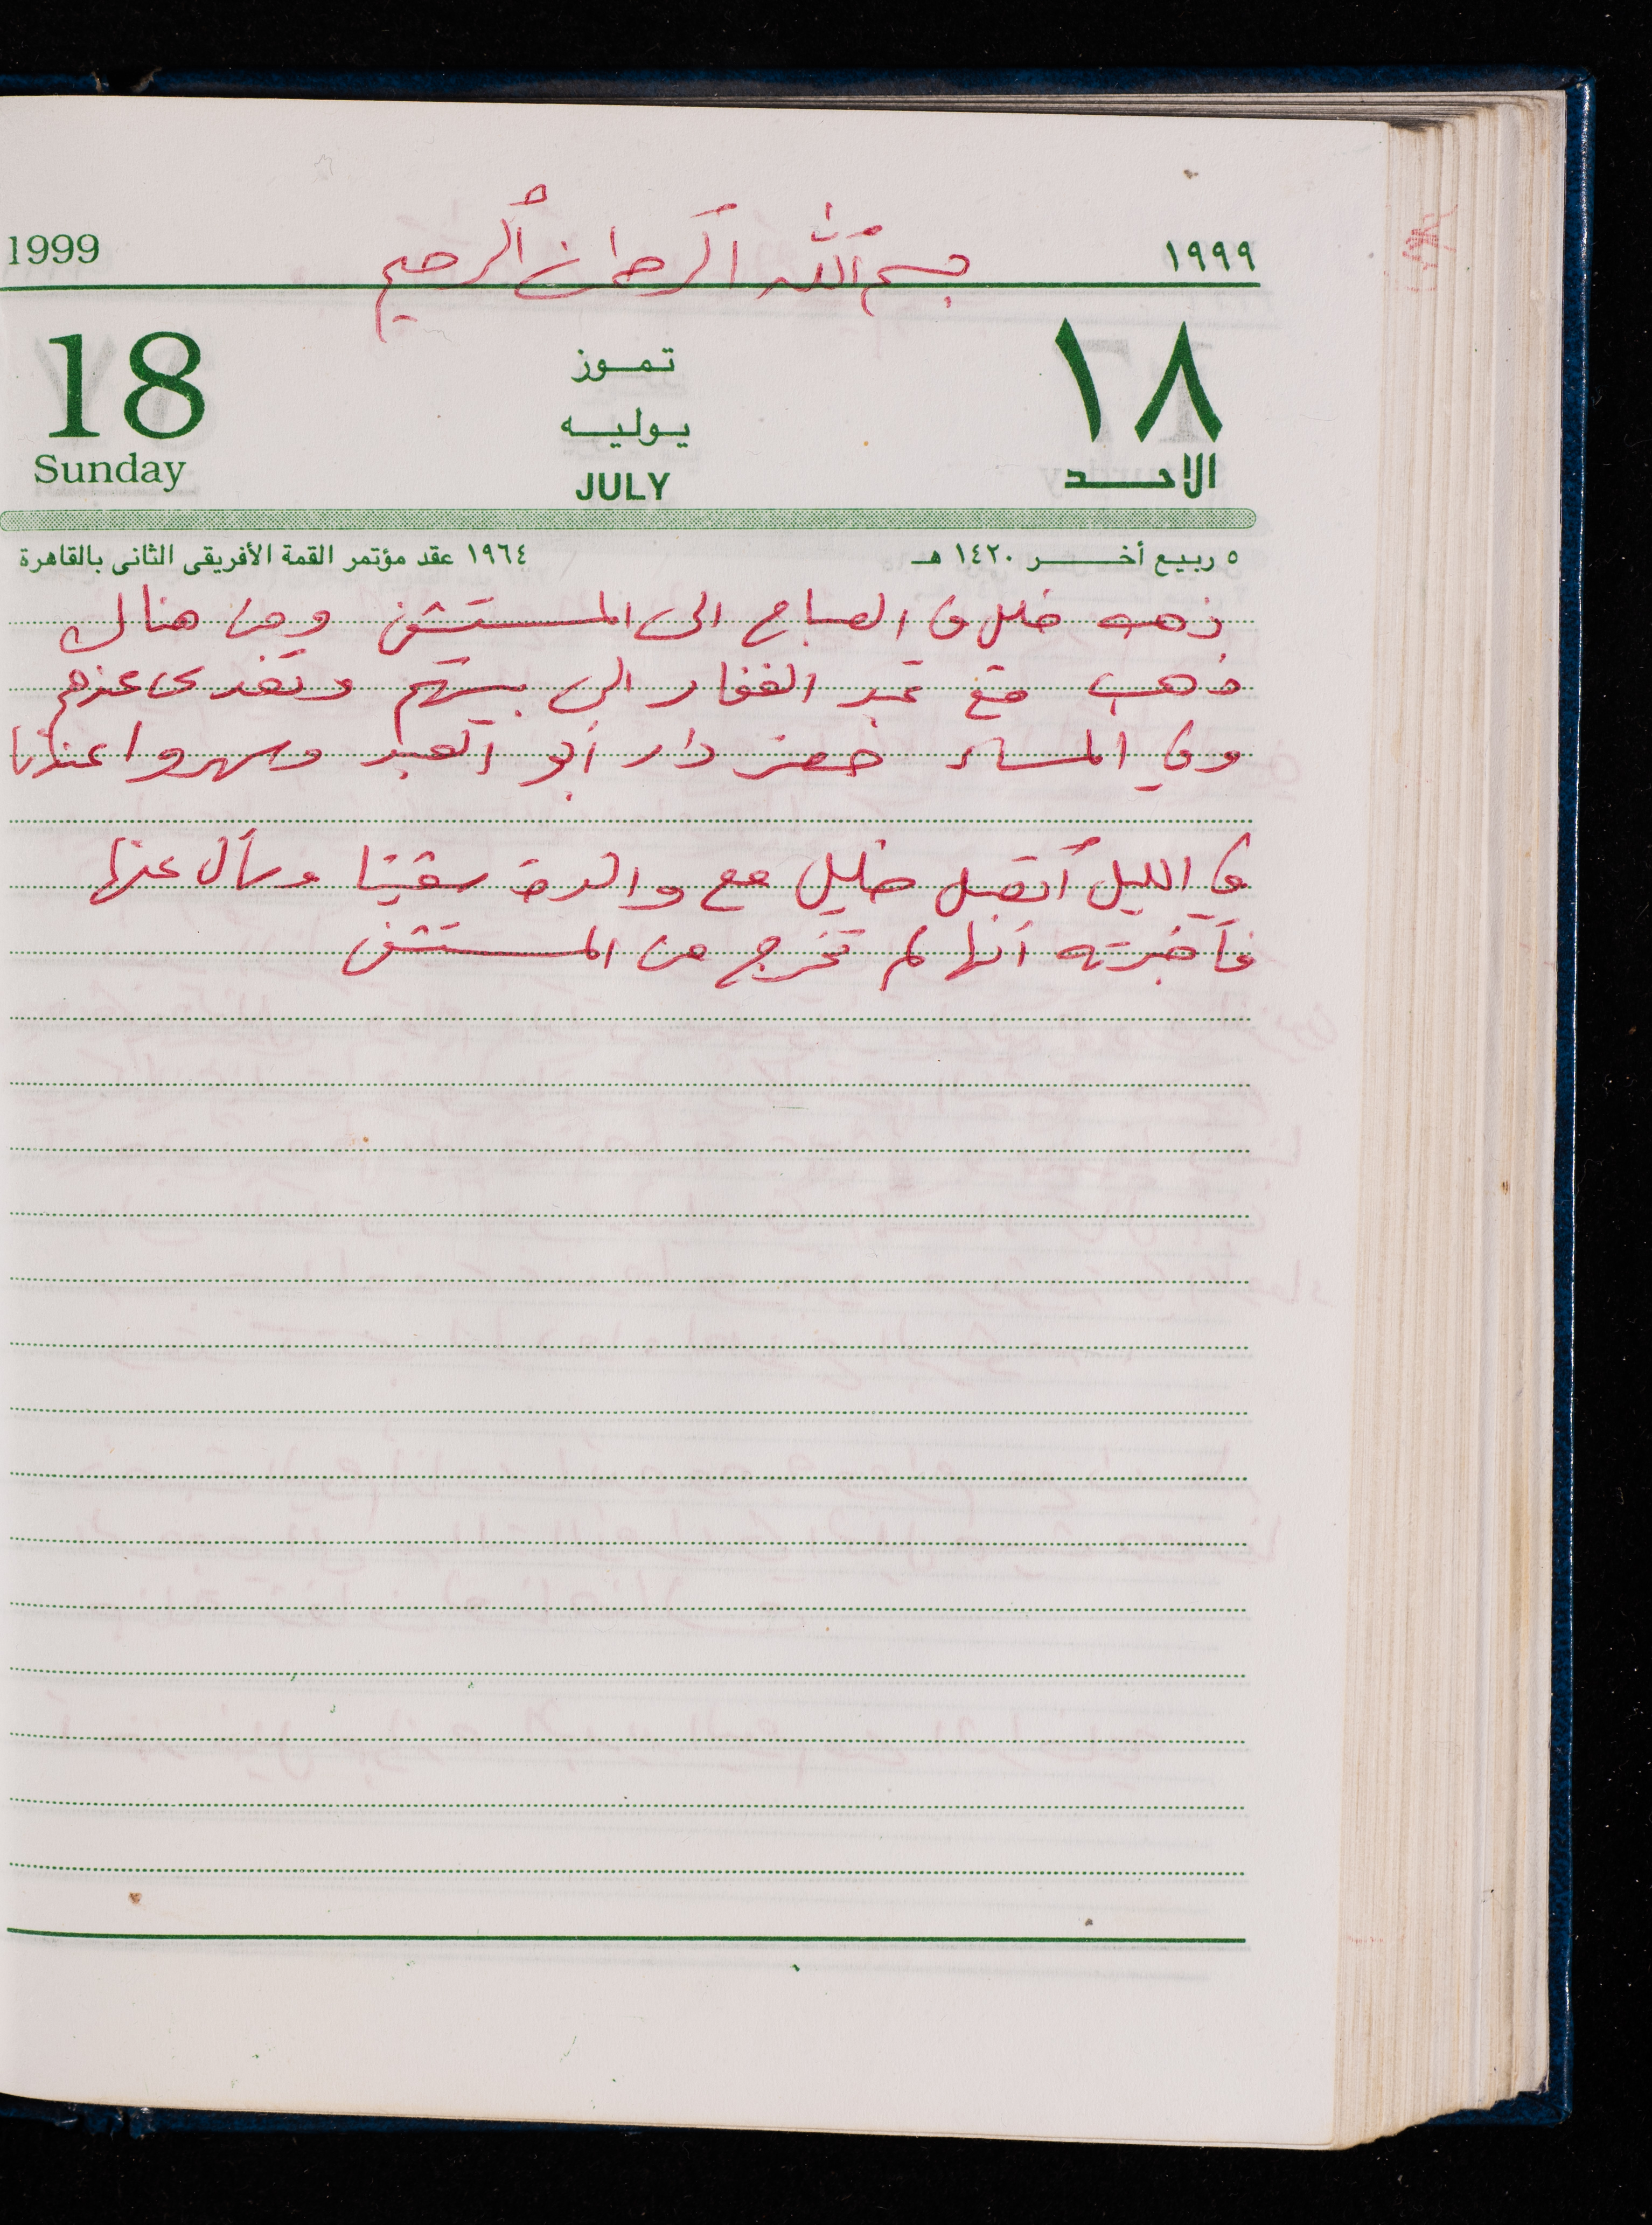 بسم الله الرحمان الرحيم
1999 ١٩٩٩
18 تموز ١٨
يوليه
Sunday JULY الاحد
٥ ربيع أخر ١٤٢٠ هـ ١٩٦٤ عقد مؤتمر القمة الأفريقى الثانى بالقاهرة
ذهب خليل في الصباح الى المستشفى ومن هناك
ذهب مع عبد الغفار الى بيتهم وتغدى عندهم
وفي المساء حضر دار أبو العبد وسهروا عندنا
في الليل أتصل خليل مع والدة وسأل عنها
فأخبرته أنها لم تخرج من المستشفى